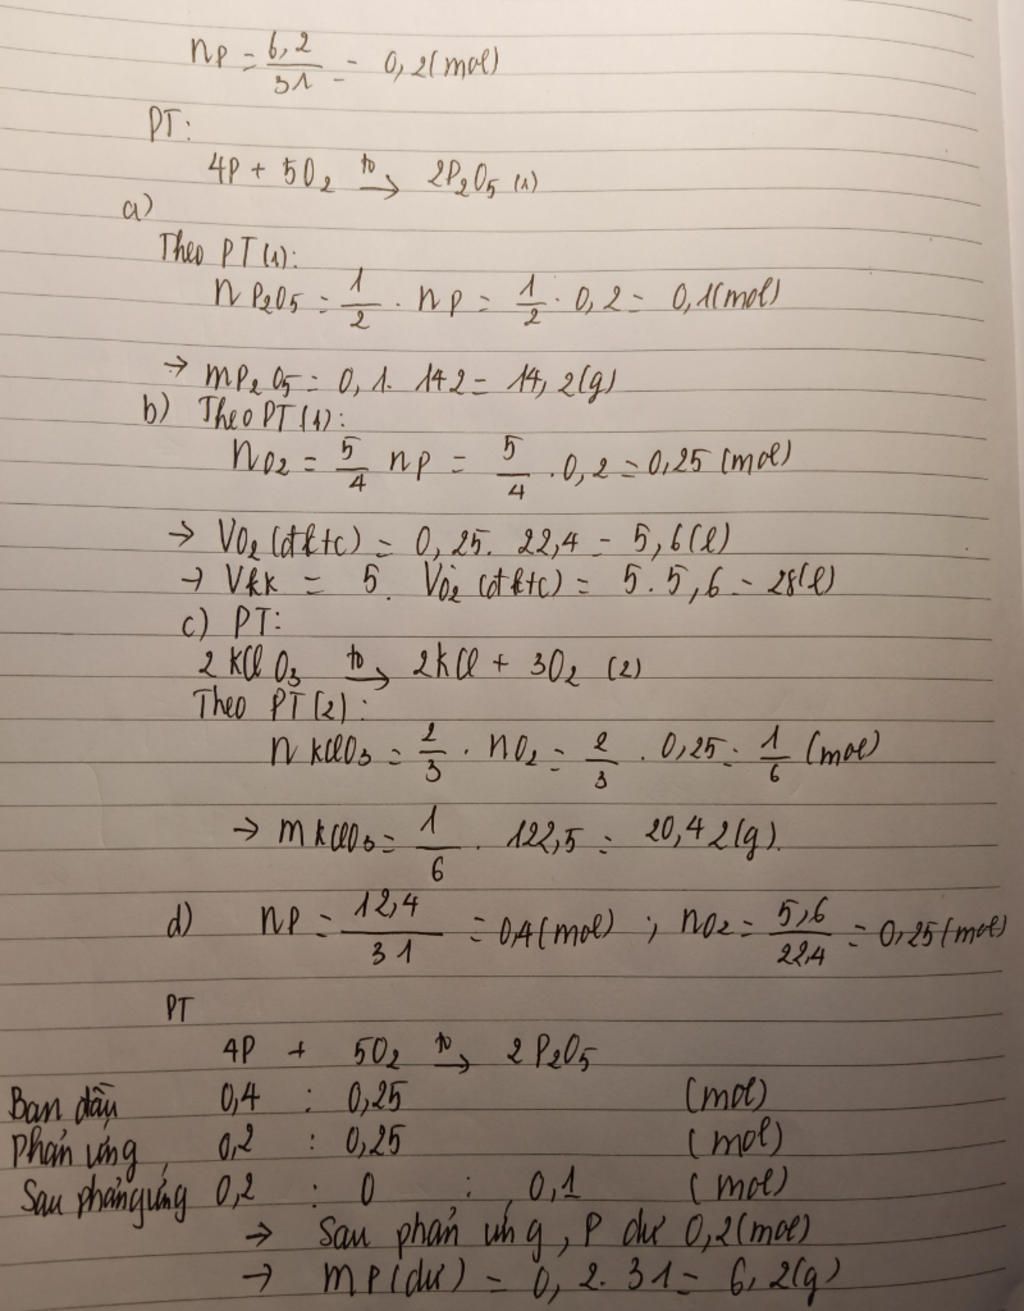 nP = 6,2/31 = 0,2(mol)
PT:
4P + 5O2 to→ 2P2O5 (1)
a)
Theo PT(1):
nP2O5 = 1/2 . nP = 1/2 . 0,2 = 0,1(mol)
→ mP2O5 = 0,1. 142 = 14,2(g)
b) Theo PT(1):
nO2 = 5/4 nP = 5/4 .0,2 = 0,25 (mol)
→ VO2 (đktc) = 0,25. 22,4 = 5,6(l)
→ Vkk = 5. VO2 (đktc) = 5.5,6 = 28(l)
c) PT:
2KClO3 to→ 2KCl + 3O2 (2)
Theo PT(2):
nKClO3 = 2/3 . nO2 = 2/3 . 0,25 = 1/6 (mol)
→ mKClO3 = 1/6 . 122,5 = 20,42(g).
d) nP = 12,4/31 = 0,4(mol) ; nO2 = 5,6/22,4 = 0,25(mol)
PT
4P + 5O2 to→ 2P2O5
Ban đầu 0,4 : 0,25 (mol)
Phản ứng 0,2 : 0,25 (mol)
Sau phản ứng 0,2 : 0 : 0,1 (mol)
→ Sau phản ứng, P dư 0,2(mol)
→ mP(dư) = 0,2.31 = 6,2(g)